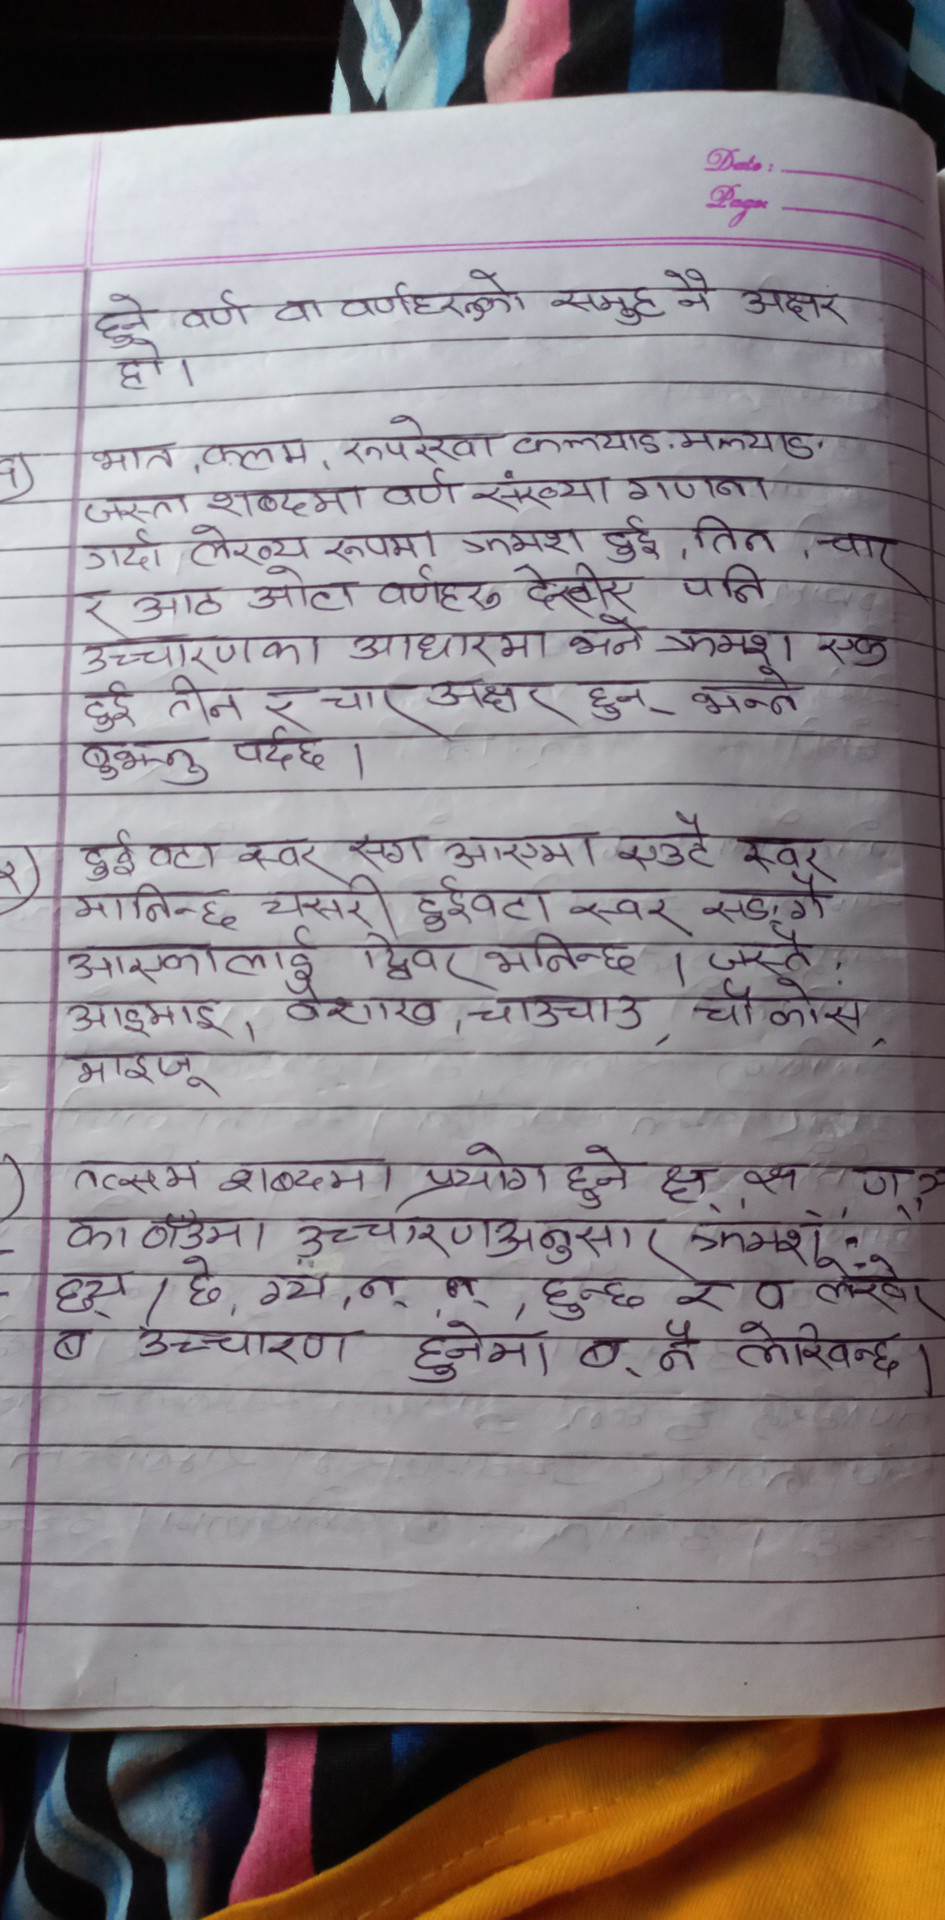 Date:
Page:
हुने वर्ण वा वर्णहरुको समुह नै अक्षर
हो।
भात, कलम, रुपरेखा कलयाङ.मलयाङ.
जस्ता शब्दमा वर्ण संख्या गणना
गर्दा लेख्य रूपमा क्रमश दुई, तिन, चार
र आठ ओटा वर्णहरु देखीए पनि
उच्चारणका आधारमा भने क्रमश। एक
दुई तीन र चार अक्षर हुन् भन्ने
बुझ्नु पर्दछ।
दुई वटा स्वर संग आएमा एउटै स्वर
मानिन्छ यसरी दुईवटा स्वर सङ्गै
आएकालाई द्विवर भनिन्छ। जस्तै:
आइमाइ, वैशाख, चाउचाउ, चौकोस,
माइजू
तत्सम शब्दमा प्रयोग हुने क्ष, ण,
का ठाँउमा उच्चारणअनुसार क्रमश:
छ्य / छे, ग्यँ, न्, न्, हुन्छ र व लेखेर
ब उच्चारण हुनेमा ब् नै लेखिन्छ।